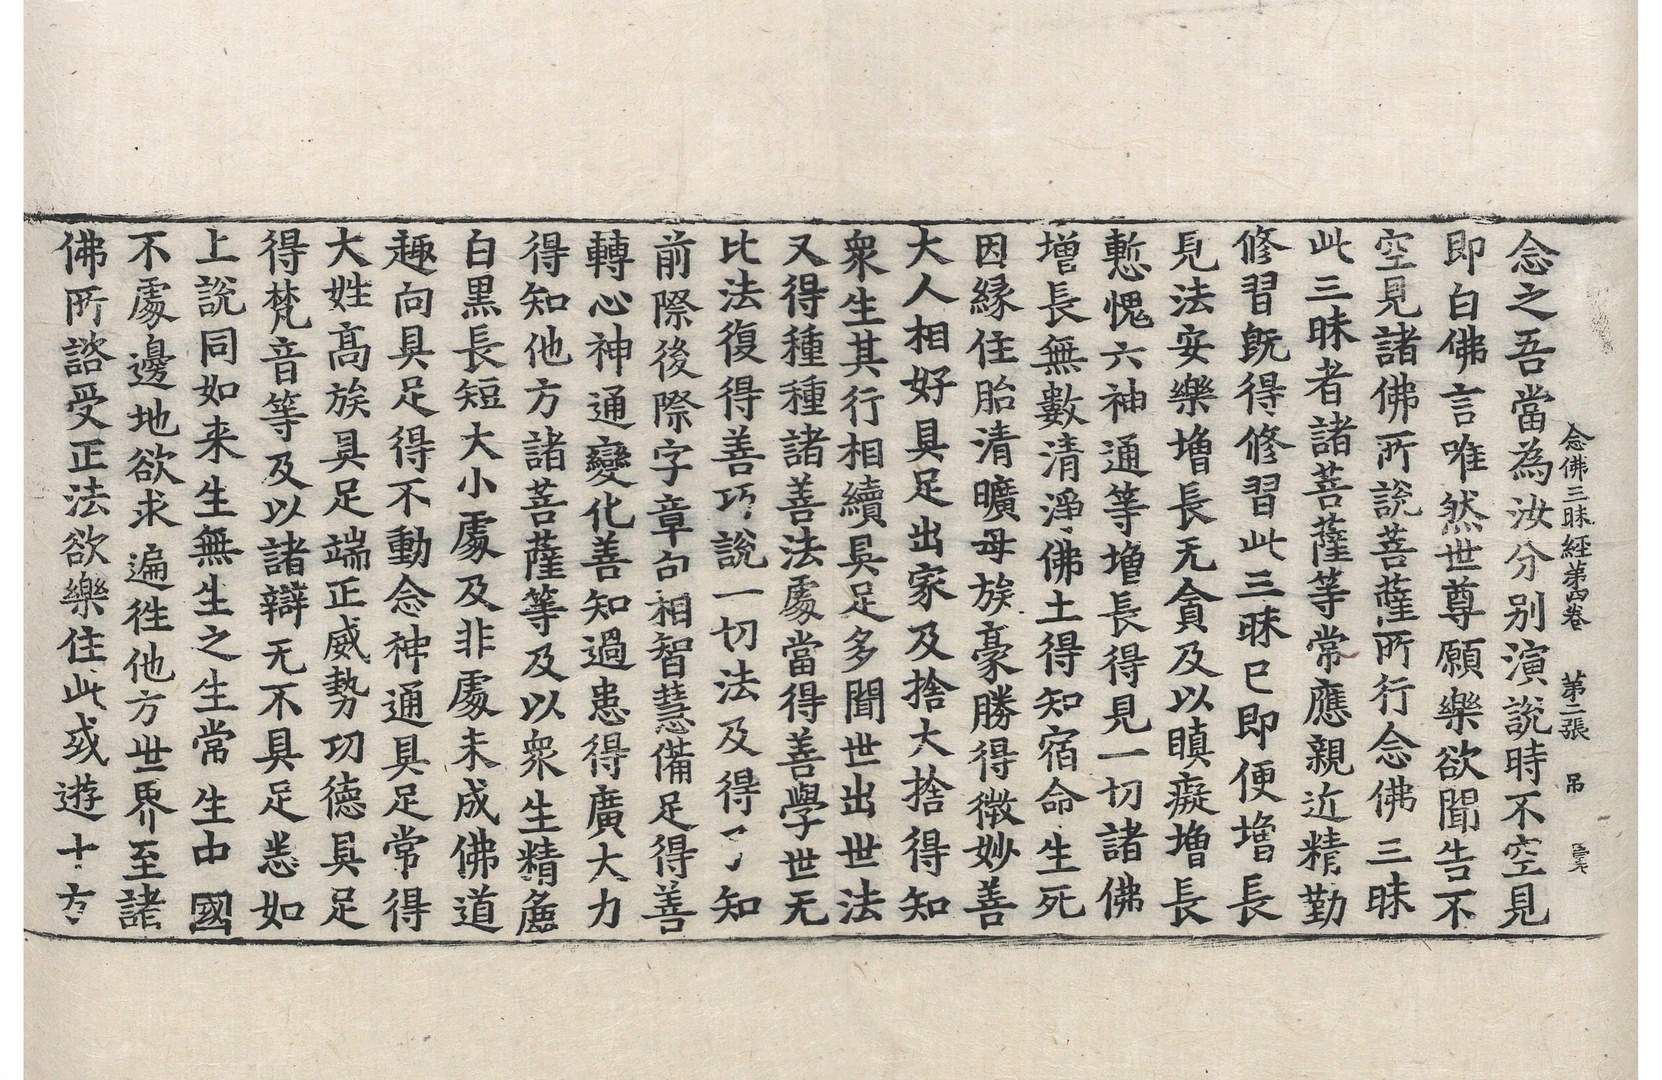 念佛三昧經第四卷 第二張 吊
念之吾當為汝分別演說時不空見
即白佛言唯然世尊願樂欲聞告不
空見諸佛所說菩薩所行念佛三昧
此三昧者諸菩薩等常應親近精勤
修習既得修習此三昧已即便增長
見法安樂增長无貪及以瞋癡增長
慙愧六神通等增長得見一切諸佛
增長無數清淨佛土得知宿命生死
因緣住胎清曠母族豪勝得微妙善
大人相好具足出家及捨大捨得知
衆生其行相續具足多聞世出世法
又得種種諸善法處當得善學世无
比法復得善巧說一切法及得了知
前際後際字章句相智慧備足得善
轉心神通變化善知過患得廣大力
得知他方諸菩薩等及以衆生精麁
白黑長短大小處及非處未成佛道
趣向具足得不動念神通具足常得
大姓高族具足端正威勢功德具足
得梵音等及以諸辯无不具足悉如
上說同如来生無生之生常生中國
不處邊地欲求遍往他方世界至諸
佛所諮受正法欲樂住此或遊十方